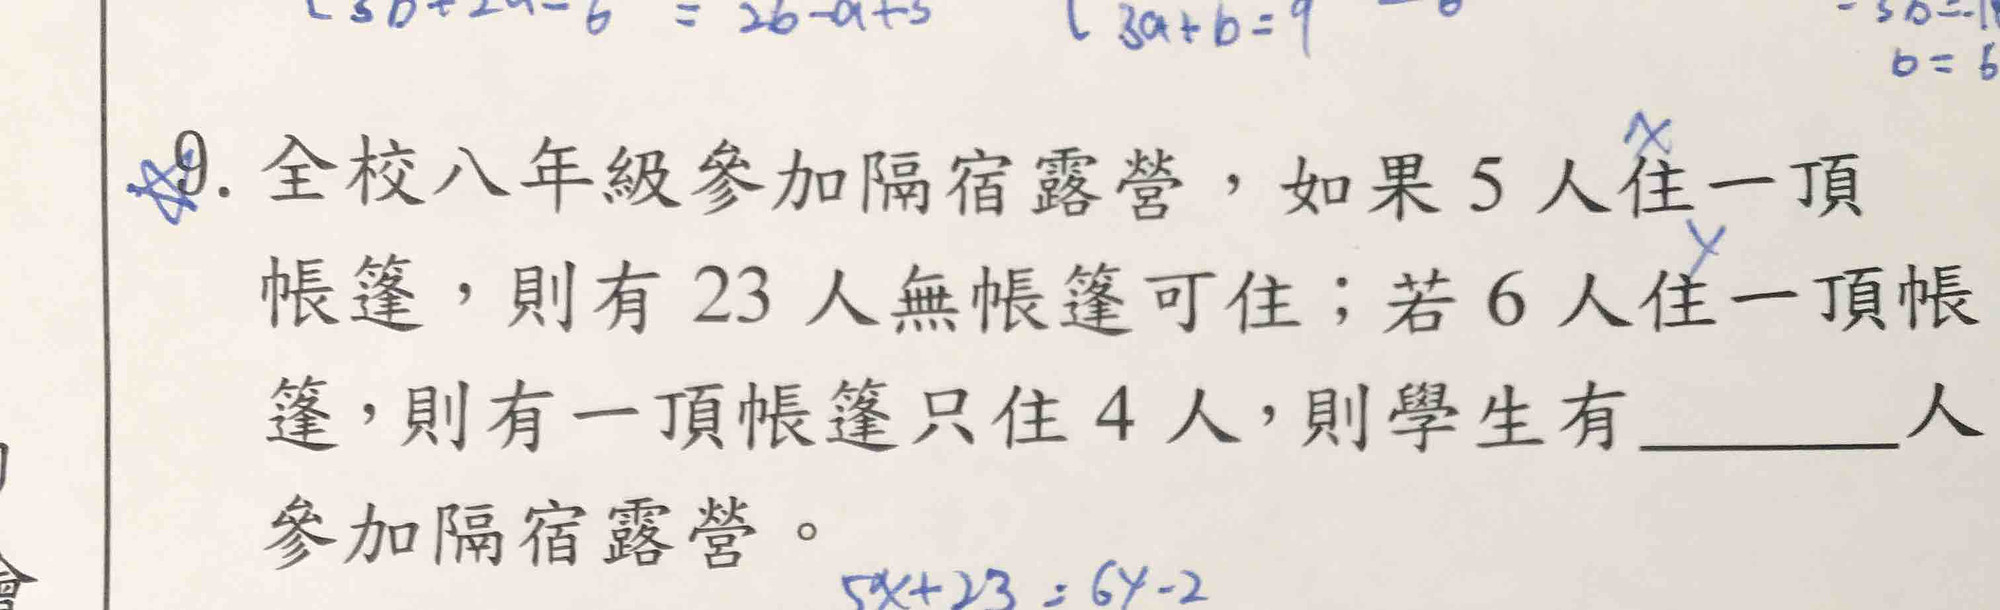 3b+2a-6 = 2b-a+3 3a+b=9
b=6
9. 全校八年級參加隔宿露營，如果 5 人住一頂
x
帳篷，則有 23 人無帳篷可住；若 6 人住一頂帳
y
篷，則有一頂帳篷只住 4 人，則學生有______人
參加隔宿露營。
5x+23=6y-2